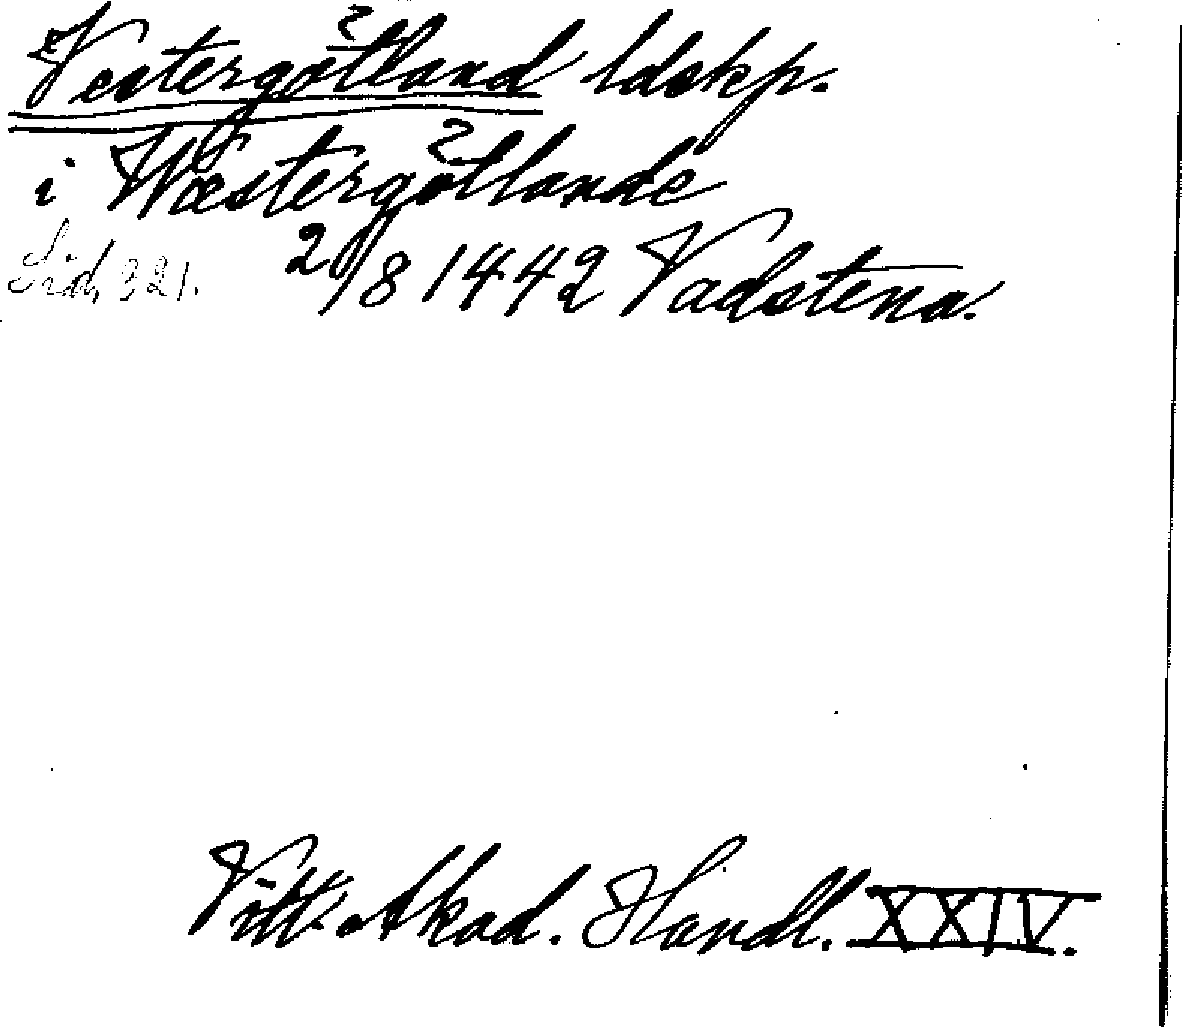 Vestergötland ldskp.
i Wæstergötlande
Sid. 321. 2/8 1442 Vadstena.
Vitt. Akad. Handl. XXIV.